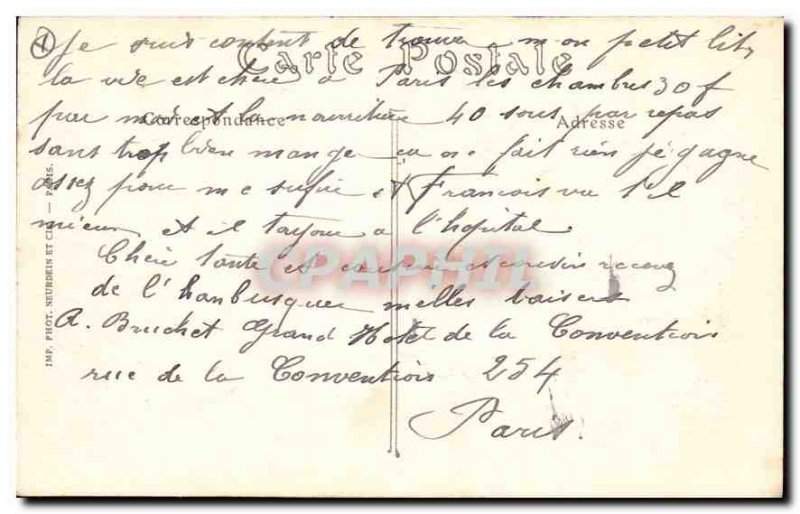 Carte Postale
Correspondance
Adresse
Je suis content de trouver mon petit lit
la vie est chère a Paris les chambres 30 f
par mois et la nourriture 40 sous par repas
sans trop bien mange ça ne fait rien je gagne
assez pour me sufire et Francois va t'il
mieux et il tayour a l'hopital
Cheie tante et cousine recevez
de l'hanbusquer melles baisers
A. Bruchet Grand Hotel de la Convention
rue de la Convention 254
Paris.
IMP. PHOT. NEURDEIN ET CIE — PARIS.
CPAPHIL